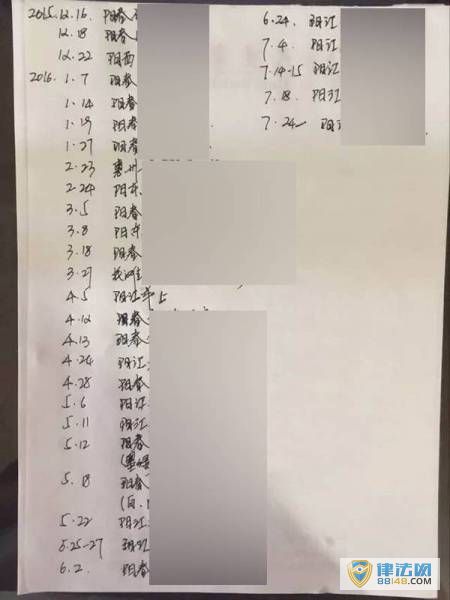 2015.12.16. 阳春
12.18 阳春
12.22 阳西
2016. 1.7 阳春
1.14 阳春
1.19 阳春
1.27 阳春
2.23 惠州
2.24 阳东
3.5 阳春
3.8 阳东
3.18 阳春
3.27
4.5 阳江
4.12 阳春
4.13 阳春
4.24 阳江
4.28 阳春
5.6 阳江
5.11 阳江
5.12 阳春
5.18 阳春
(白
5.22 阳江
5.25-27 阳江
6.2. 阳春
6.24. 阳江
7.4. 阳江
7.14-15 阳江
7.18. 阳江
7.24 阳江
律法网
88148.com